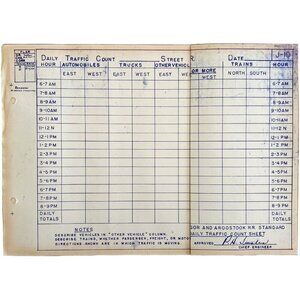 PLAN
J-10
DAILY TRAFFIC COUNT STREET R. DATE
HOUR AUTOMOBILES TRUCKS OTHER VEHICLE OR MORE TRAINS HOUR
EAST WEST EAST WEST EAST WEST NORTH SOUTH
6-7 AM 6-7 AM
7-8 AM 7-8 AM
8-9 AM 8-9 AM
9-10 AM 9-10 AM
10-11 AM 10-11 AM
11-12 N 11-12 N
12-1 PM 12-1 PM
1-2 PM 1-2 PM
2-3 PM 2-3 PM
3-4 PM 3-4 PM
4-5 PM 4-5 PM
5-6 PM 5-6 PM
6-7 PM 6-7 PM
7-8 PM 7-8 PM
8-9 PM 8-9 PM
DAILY TOTALS DAILY TOTALS
NOTES
DESCRIBE VEHICLES IN "OTHER VEHICLE" COLUMN.
DESCRIBE TRAINS, WHETHER PASSENGER, FREIGHT, OR MOTOR
DIRECTIONS SHOWN ARE IN WHICH TRAFFIC IS MOVING.
GOR AND AROOSTOOK R.R. STANDARD
DAILY TRAFFIC COUNT SHEET
APPROVED
CHIEF ENGINEER